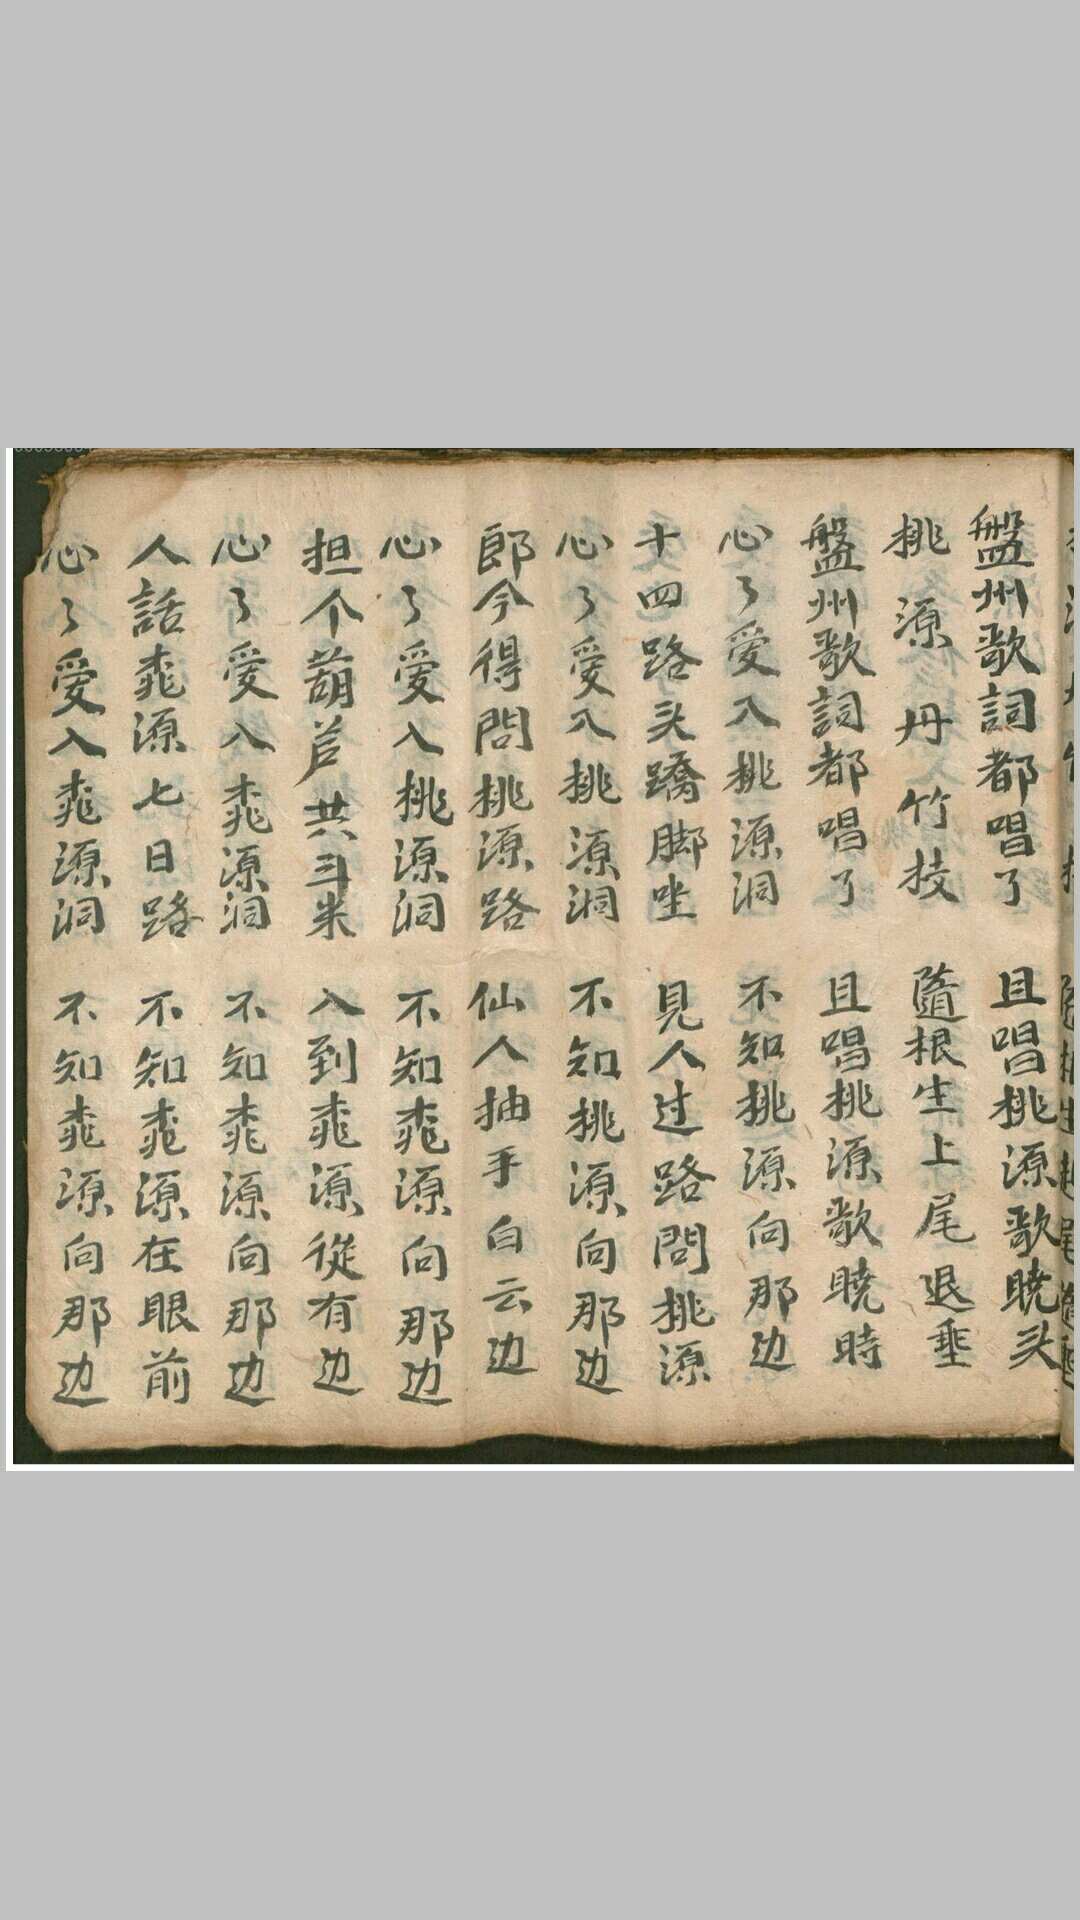 盤州歌詞都唱了 且唱桃源歌曉头
桃源丹竹技 隨根生上尾退垂
盤州歌詞都唱了 且唱桃源歌曉時
心了爱入桃源洞 不知桃源向那边
十四路头蹻脚坐 見人过路問桃源
心了爱入桃源洞 不知桃源向那边
郎今得問桃源路 仙人抽手白云边
心了爱入桃源洞 不知桃源向那边
担个葫芦共斗米 入到桃源從有边
心了爱入桃源洞 不知桃源向那边
人話桃源七日路 不知桃源在眼前
心了爱入桃源洞 不知桃源向那边